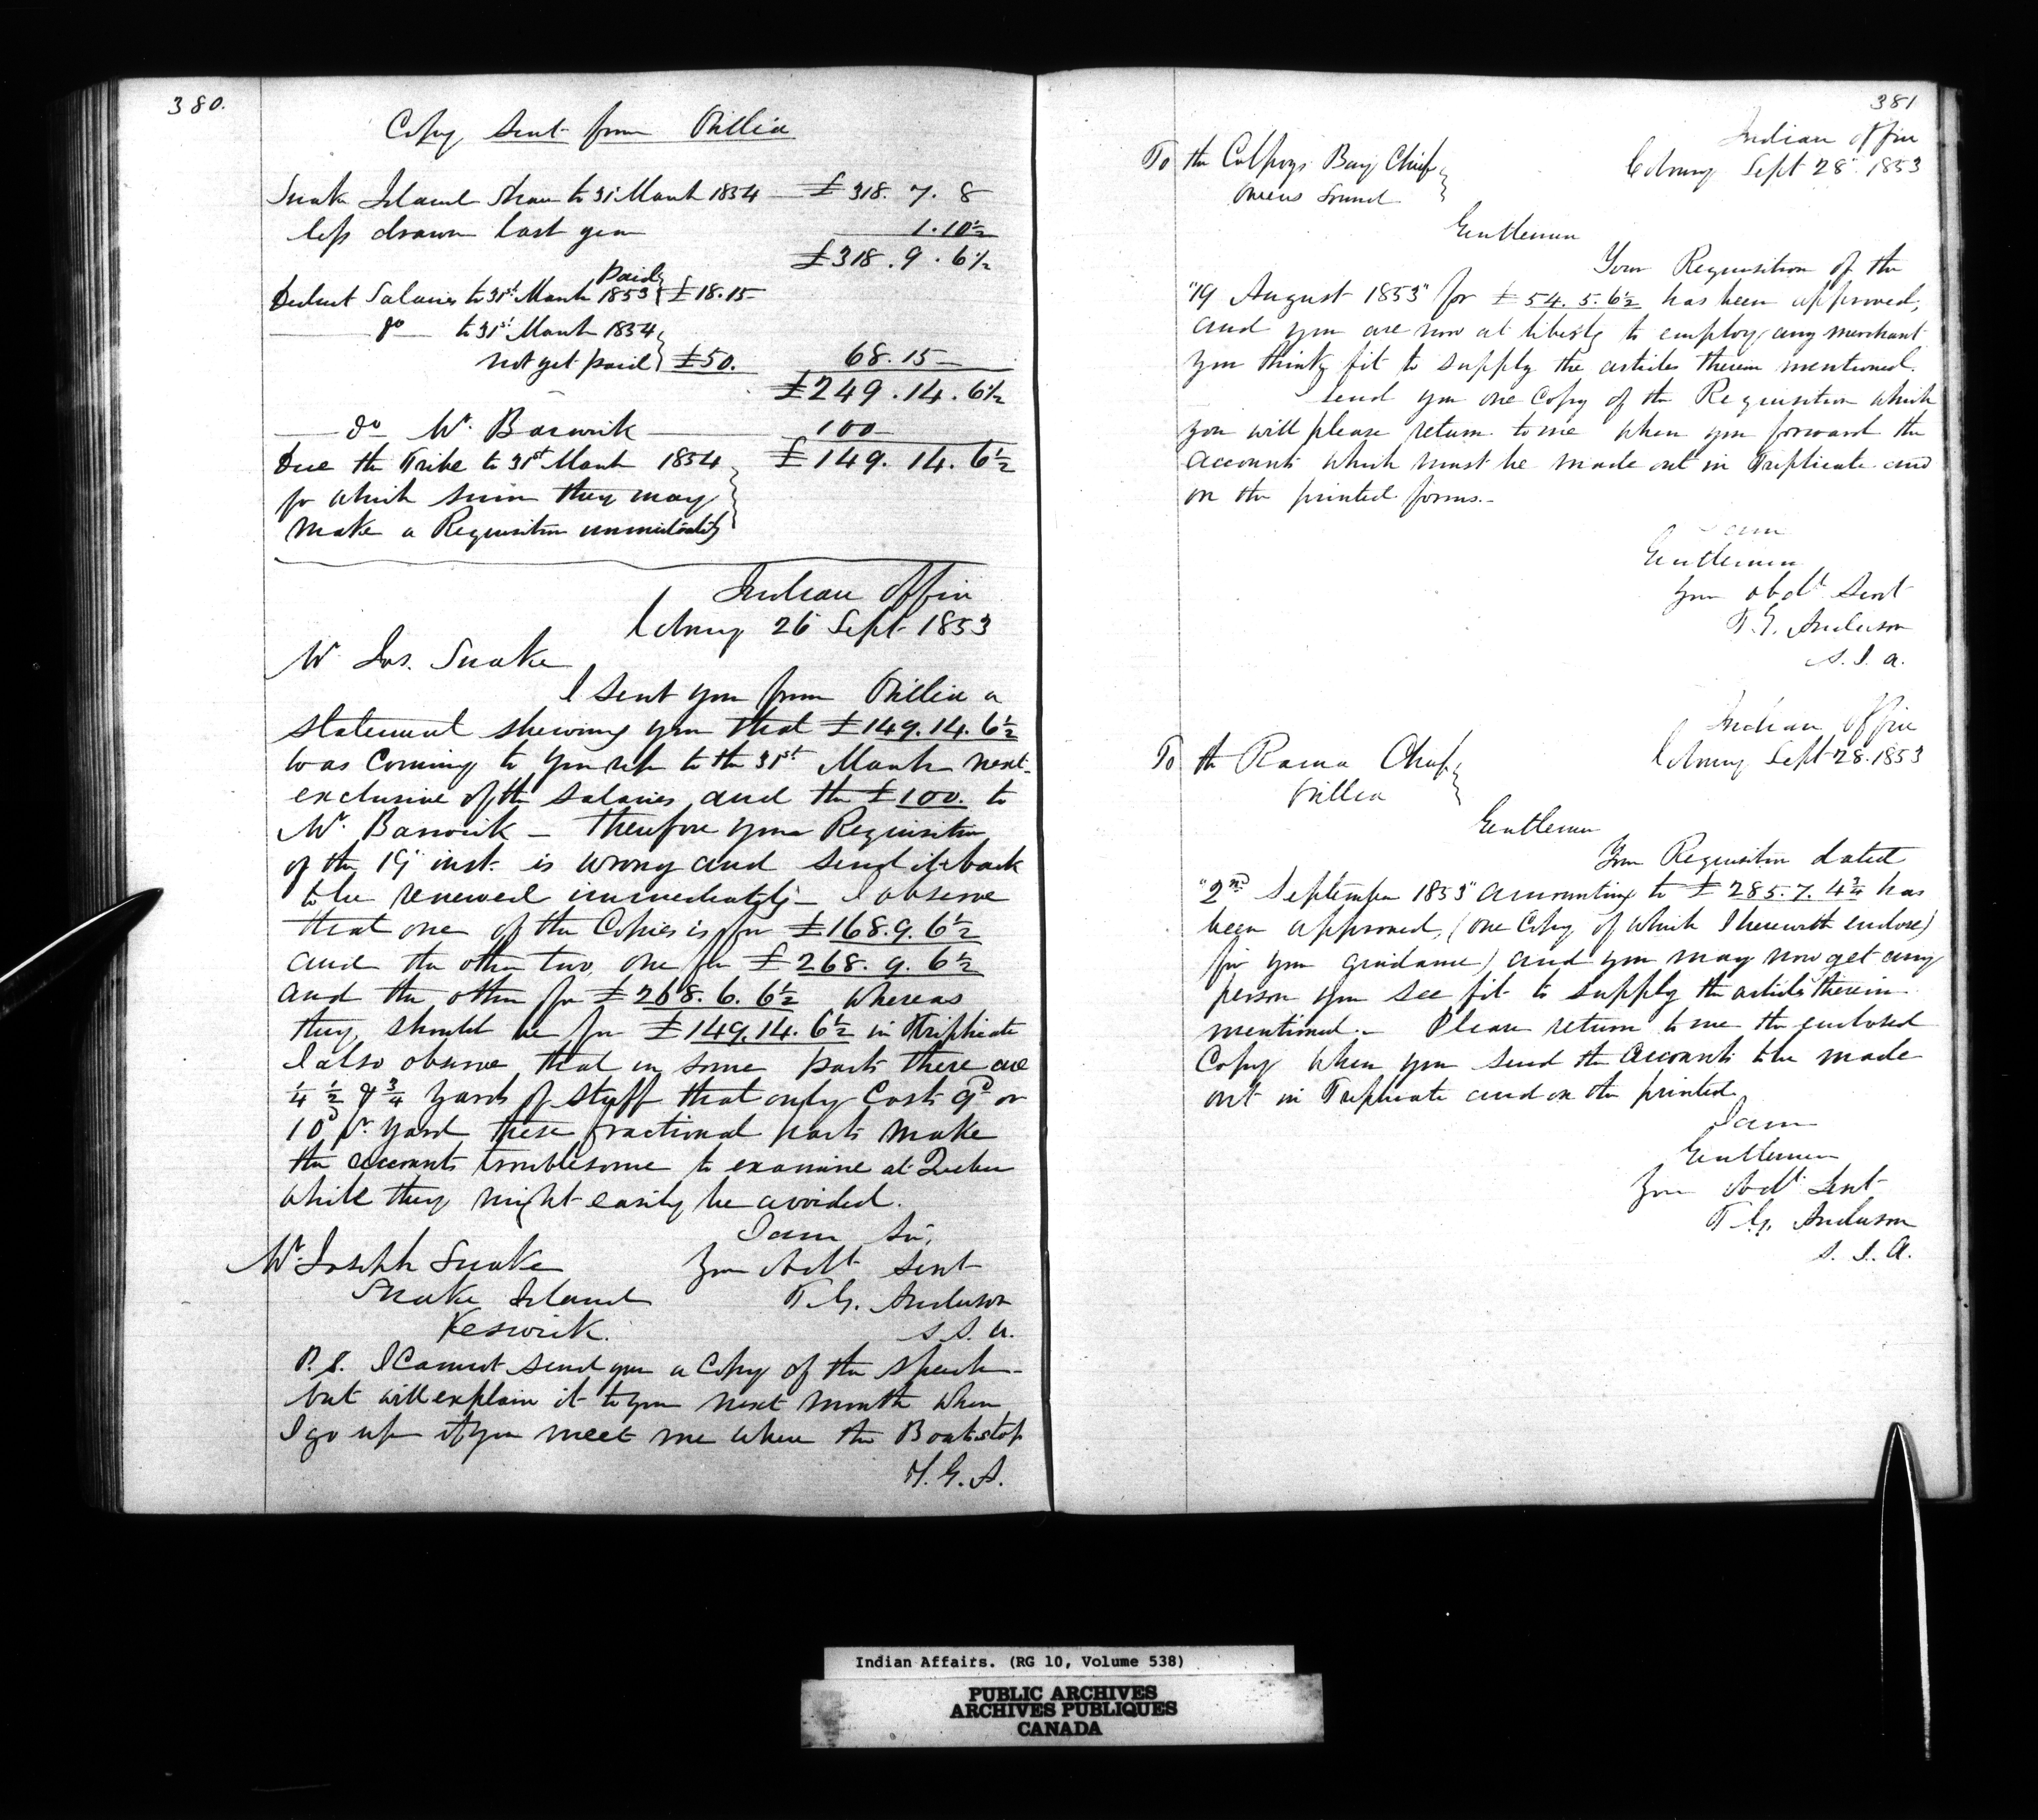 380.
Copy sent from Orillia
Snake Island share to 31st March 1854 — £318. 7. 8
less drawn last year 1.10½
£318. 9. 6½
Deduct Salaries to 31st March 1853 paid } £18.15
do to 31st March 1854 }
not yet paid } £50. 68.15
£249.14.6½
do Mr. Barwick 100
Due the Tribe to 31st March 1854 £149.14.6½
for which sum they may
make a Requisition immediately
Indian Office
Cobourg 26 Sept. 1853
Mr Jos. Snake
I sent you from Orillia a
statement shewing you that £149.14.6½
was coming to you up to the 31st March next
exclusive of the salaries and the £100. to
Mr. Barwick – Therefore your Requisition
of the 19 inst. is wrong and send it back
to be renewed immediately – I observe
that one of the Copies is for £168.9.6½
and the other two, one for £268.9.6½
and the other for £268.6.6½ whereas
they should be for £149.14.6½ in Triplicate
I also observe that in some parts there are
¼ ½ & ¾ yards of stuff that only Cost 9d or
10d pr. yard these fractional parts make
the accounts troublesome to examine at Quebec
while they might easily be avoided.
I am Sir,
Mr. Joseph Snake Your Obdt Servt
Snake Island T. G. Anderson
Keswick. S. I. A.
P.S. I Cannot send you a Copy of the speech –
but will explain it to you next month when
I go up if you meet me where the Boat stop
T. G. A.
381
Indian Office
To the Colpoys Bay Chiefs } Cobourg Sept 28th. 1853
Owens Sound
Gentlemen
Your Requisition of the
"19 August 1853" for £54.5.6½ has been approved,
and you are now at liberty to employ any merchant
you think fit to supply the articles therein mentioned.
I send you one Copy of the Requisition which
you will please return to me when you forward the
accounts which must be made out in Triplicate and
on the printed forms. –
I am
Gentlemen
Your obdt Servt
T. G. Anderson
S. I. A.
Indian Office
To the Rama Chiefs } Cobourg Sept 28. 1853
Orillia
Gentlemen
Your Requisition dated
"2nd September 1853" amounting to £285.7.4¾ has
been approved, (one Copy of which I herewith enclose)
for your guidance) and you may now get any
person you see fit to supply the articles therein
mentioned. – Please return to me the enclosed
Copy when you send the accounts to be made
out in Triplicate and on the printed
I am
Gentlemen
Your Obdt Servt
T. G. Anderson
S. I. A.
Indian Affairs. (RG 10, Volume 538)
PUBLIC ARCHIVES
ARCHIVES PUBLIQUES
CANADA